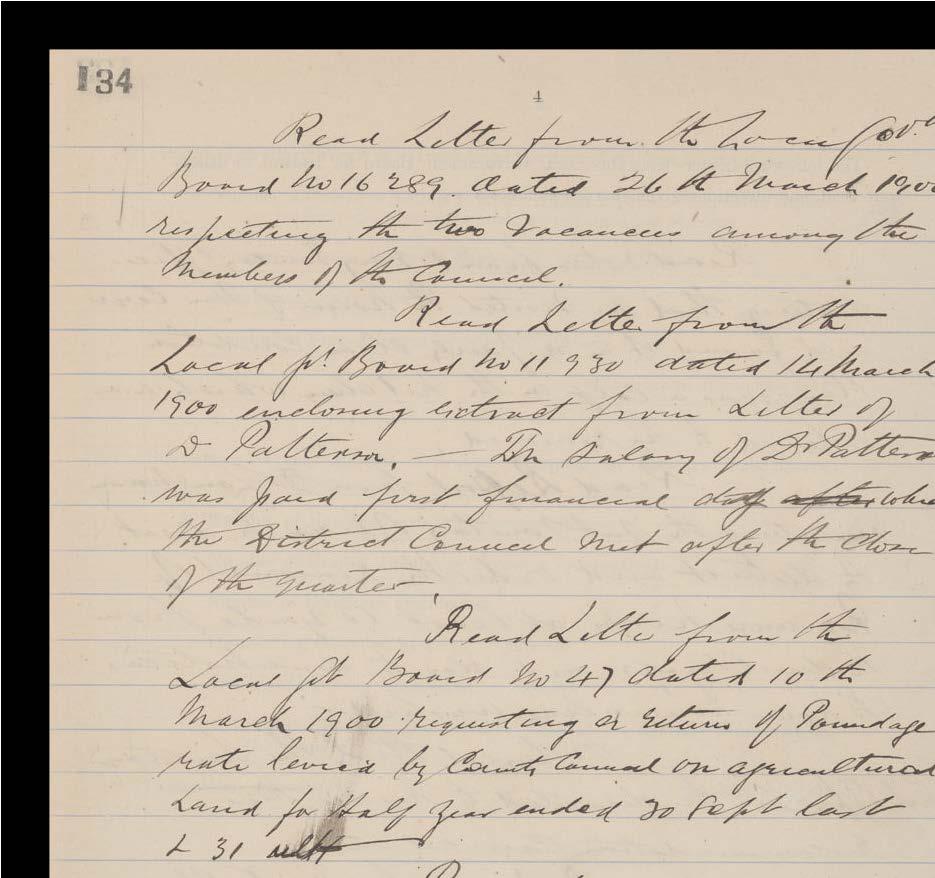 134
4
Read Letter from the Local Govt
Board No 16289 dated 26th March 1900
respecting the two Vacancies among the
Members of the Council.
Read Letter from the
Local Gt. Board No 11930 dated 14 March
1900 enclosing extract from Letter of
Dr Patterson. — The Salary of Dr Patterson
was paid first financial day after when
the District Council met after the close
of the quarter.
Read Letter from the
Local Gt Board No 47 dated 10th
March 1900 requesting a return of Poundage
rate levied by County Council on agricultural
Land for Half year ended 30 Sept last
& 31